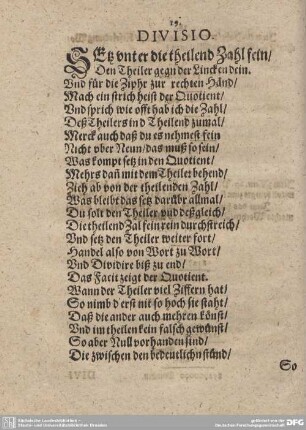 19.
DIVISIO.
SEtz vnter die theilend Zahl fein/
Den Theiler gegn der Lincken dein.
Vnd für die Ziphr zur rechten Händ/
Mach ein strich heist der Quotient/
Vnd sprich wie offt hab ich die Zahl/
Deß Theilers in d Theilend zumal/
Merck auch daß du es nehmest fein
Nicht vber Neun/ das muß so sein/
Was kompt setz in den Quotient/
Mehrs dañ mit dem Theiler behend/
Zieh ab von der theilenden Zahl/
Was bleibt das setz darüber allmal/
Du solt den Theiler vnd deßgleich/
Die theilend Zal fein rein durchstreich/
Vnd setz den Theiler weiter fort/
Handel also von Wort zu Wort/
Vnd Dividire biß zu end/
Das Facit zeigt der Quotient.
Wann der Theiler viel Ziffern hat/
So nimb d erst nit so hoch sie staht/
Daß die ander auch mehren könst/
Vnd im theilen kein falsch gewünst/
So aber Null vorhanden sind/
Die zwischen den bedeutlichn stünd/
So